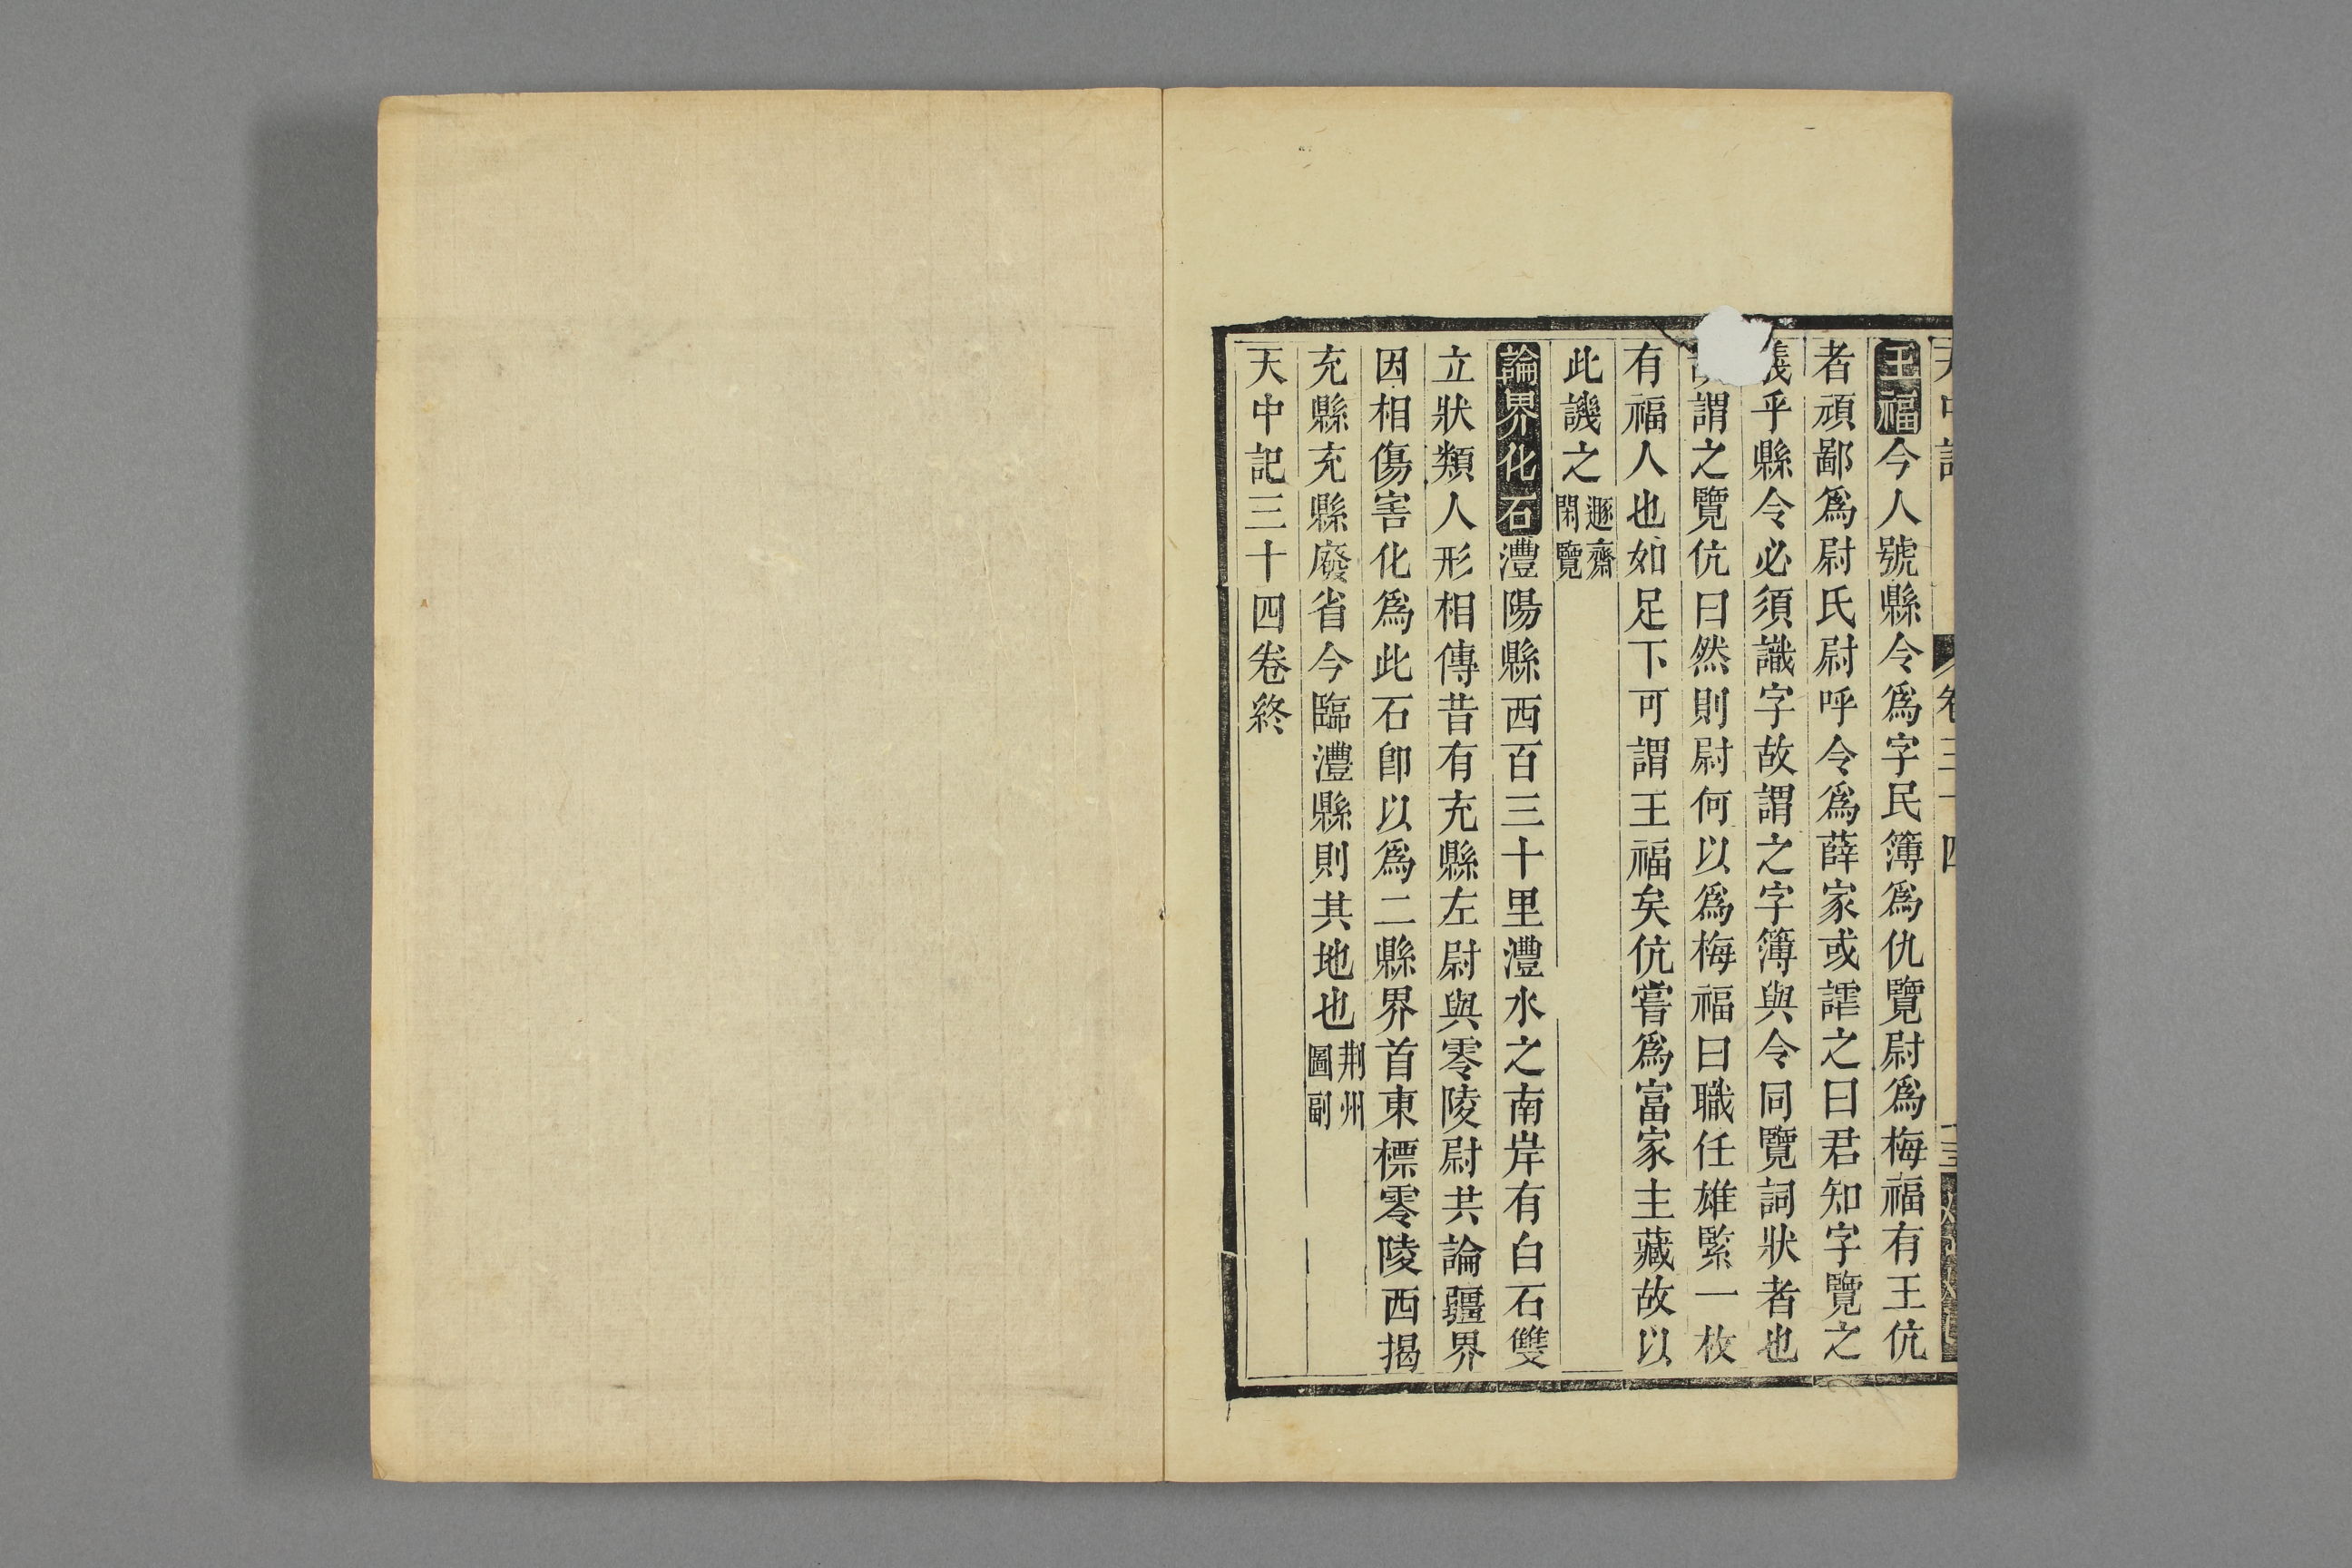 王福今人號縣令爲字民簿爲仇覽尉爲梅福有王伉
者頑鄙爲尉氏尉呼令爲薛家或謔之曰君知字覽之
義乎縣令必須識字故謂之字簿與令同覽詞狀者也
謂之覽伉曰然則尉何以爲梅福曰職任雄緊一枚
有福人也如足下可謂王福矣伉嘗爲富家主藏故以
此譏之遯齋閑覽
論界化石澧陽縣西百三十里澧水之南岸有白石雙
立狀類人形相傳昔有充縣左尉與零陵尉共論疆界
因相傷害化爲此石卽以爲二縣界首東標零陵西揭
充縣充縣廢省今臨澧縣則其地也荆州圖副
天中記三十四卷終